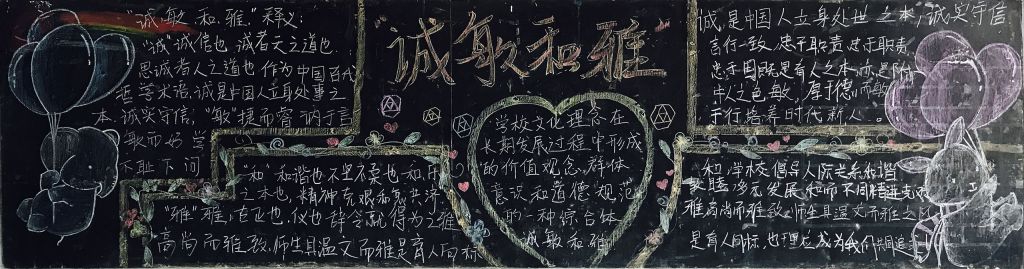 诚敏和雅
"诚敏和雅"释义:
"诚"诚信也,诚者天之道也
思诚者人之道也 作为中国古代
哲学术语,诚是中国人立身处事之
本,诚实守信,"敏"捷而密 讷于言
敏而好学
不耻下问
"和"和谐也 不坚不柔也 和乐
之本也,精神
"雅"雅,古正也,仪也 辞令就得为之雅
高尚而雅致.师生具温文而雅是育人目标
学校文化理念在
长期发展过程中形成
的价值观念,群体
意识和道德规范
的一种综合体
诚敏和雅
诚是中国人立身处世之本,诚实守信
言行一致,忠于职责,忠于职责,
忠于国既是育人之本,亦是
中人之色敏,厚于德,而敏
于行培养时代新人。
和,学校倡导人际关系和谐
发展,和而不同精进克难
雅高尚而雅致.师生具温文而雅之
是育人目标,也理应成为我们共同追